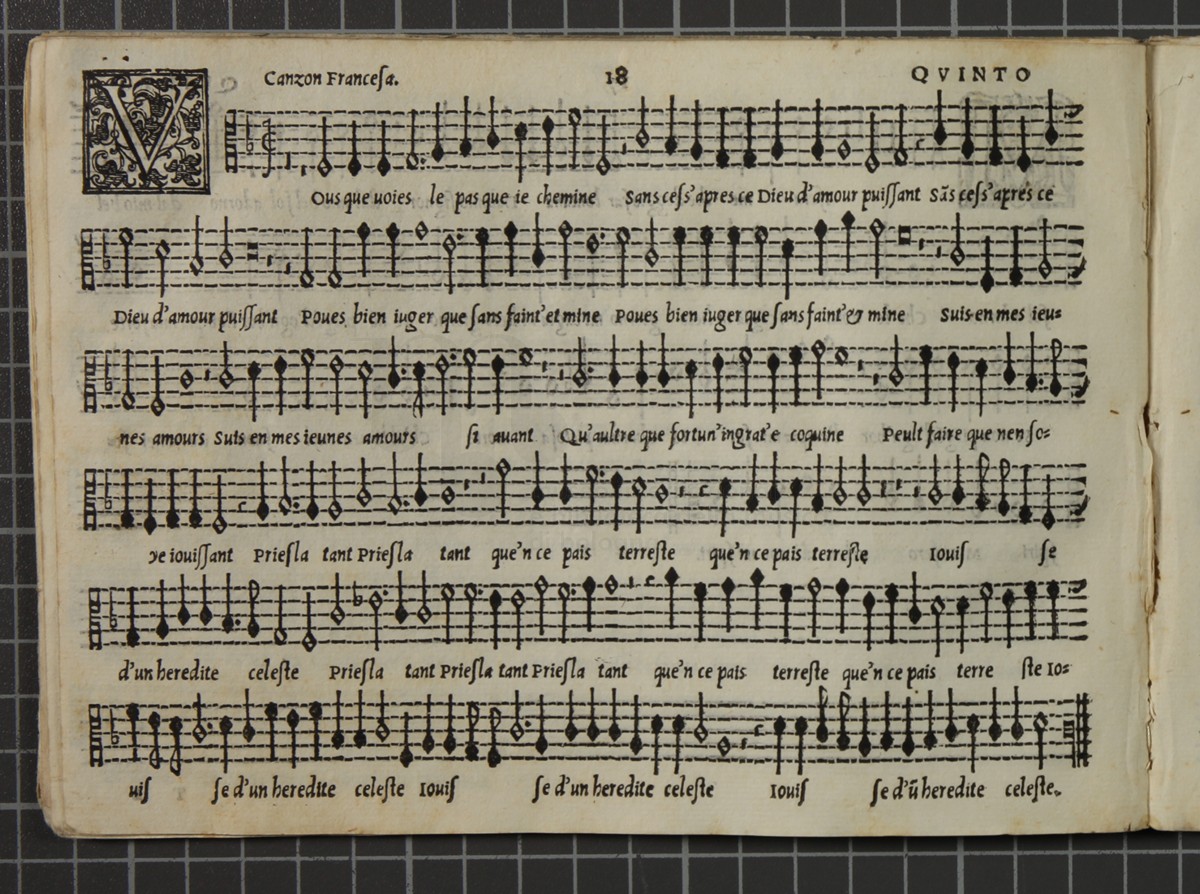 Canzon Franceſa. 18 QVINTO
VOus que uoies le pas que ie chemine Sans ceſs'apres ce Dieu d'amour puiſſant Sãs ceſs'apres ce
Dieu d'amour puiſſant Poues bien iuger que ſans faint'et mine Poues bien iuger que ſans faint'& mine Suis en mes ieu=
nes amours Suis en mes ieunes amours ſi auant Qu'aultre que fortun'ingrat'e coquine Peult faire que nen ſo=
ye iouiſſant Prieſla tant Prieſla tant que'n ce pais terreſte que'n ce pais terreſte Iouiſ ſe
d'un heredite celeſte Prieſla tant Prieſla tant Prieſla tant que'n ce pais terreſte que'n ce pais terre ſte Io=
uiſ ſe d'un heredite celeſte Iouiſ ſe d'un heredite celeſte Iouiſ ſe d'ũ heredite celeſte.